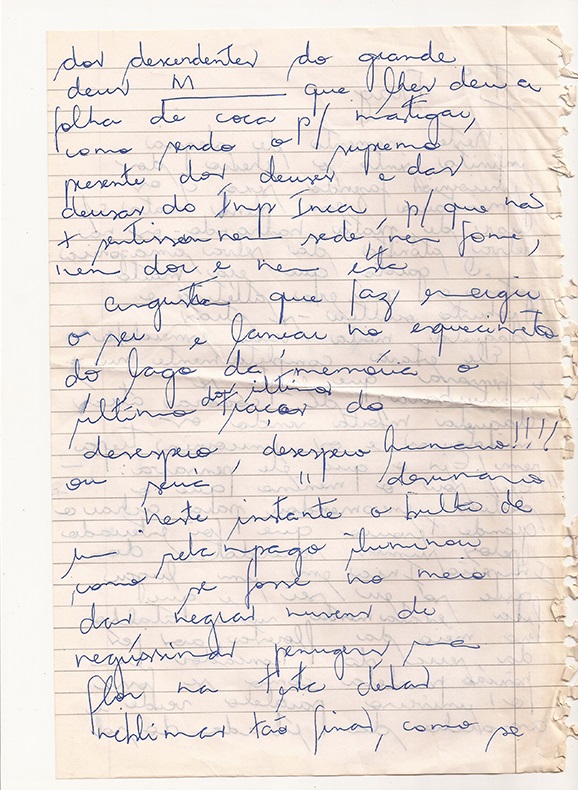 dos descendentes do grande
deus M que lhes deu a
folha de coca p/ mastigar,
como sendo o supremo
presente dos deuses e das
deusas do Imp Inca, p/ que não
+ sentissem nem sede, nem fome,
nem dor e nem esta
angustia que faz emergir
o ser e lançar no esquecimento
do lago da memória o
último dos últimos traços do
desespero, desespero humano!!!!
ou será " desumano
Neste instante o brilho de
um relampago iluminou
como se fosse no meio
das negras nuvens de
negríssimas penugens uma
flor na testa destas
neblinas tão finas, como se